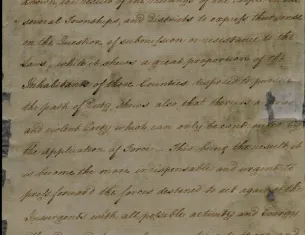 known, the result of the meetings of the People in the
several Townships, and Districts to express their sense
on the Question of submission or resistance to the
Laws, while it shows a great proportion of the
Inhabitants of those Counties disposed to pursue
the path of Duty, shows also that there is a
and violent Party which can only be controuled by
the application of Force. This being the result, it
is become the more indispensable and urgent to
press forward the forces destined to act against the
Insurgents with all possible activity and Energy